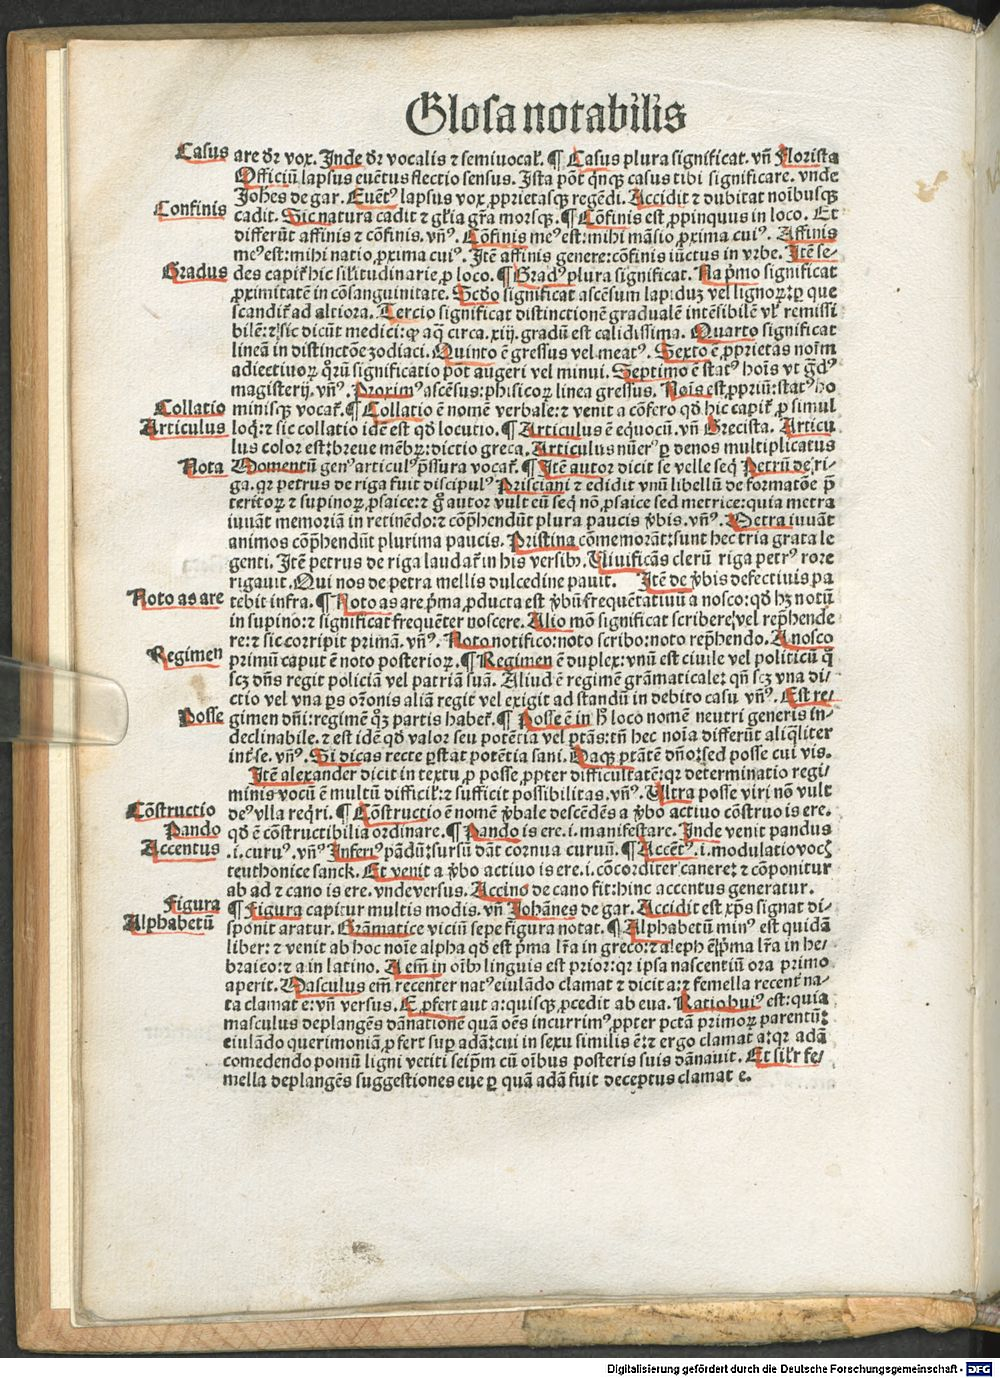 Glosa notabilis
Casus are dr̄ vox. Inde dr̄ vocalis ⁊ semivocał. ¶ Casus plura significat. vn̄ Florista
Officiū lapsus euētus flectio sensus. Ista pōt q̄nꝗ casus tibi significare. vnde
Johēs de gar. Euētꝰ lapsus vox ꝓprietasꝗ regēdi. Accidit ⁊ dubitat noībusꝗ
Confinis cadit. Sic natura cadit ⁊ gl̄ia gr̄a morsꝗ. ¶ Cōfinis est ꝓpinquus in loco. Et
differūt affinis ⁊ cōfinis. vn̄ꝰ. Cōfinis meꝰ est: mihi māsio ꝓxima cuiꝰ. Affinis
meꝰ est: mihi natio ꝓxima cuiꝰ. Itē affinis genere: cōfinis iūctus in vrbe. Itē se-
Gradus des capit̄ hic sil̄itudinarie ꝓ loco. ¶ Gradꝰ plura significat. Nā p̄mo significat
ꝓximitatē in cōsanguinitate. Scd̄o significat ascēsum lapiduꝫ vel lignoꝝ: ⁊ ꝑ que
scandit̄ ad altiora. Tercio significat distinctionē gradualē intēsibilē vl̄ remissi
bilē: ⁊ sic dicūt medici: ꝙ aq̄ circa .xiij. gradū est calidissima. Quarto significat
lineā in distinctōe zodiaci. Quinto ē gressus vel meatꝰ. Sexto ē ꝓprietas noīm
adiectiuoꝝ q̄ꝝ significatio pōt augeri vel minui. Septimo ē statꝰ hoīs vt gdꝰ
magisterij. vn̄ꝰ. Proximꝰ ascēsus: phisicoꝝ linea gressus. Noīs est ꝓpriū: statꝰ ho
Collatio minisꝗ vocat̄. ¶ Collatio ē nomē verbale: ⁊ venit a cōfero qd̄ hic capit̄ ꝓ simul
Articulus loq̄: ⁊ sic collatio idē est qd̄ locutio. ¶ Articulus ē equocū. vn̄ Grecista. Articu
lus color est: breue mēbꝝ: dictio greca. Articulus nūerꝰ ꝑ denos multiplicatus
Nota Momentū genꝰ articulꝰ p̄ssura vocat̄. ¶ Itē autor dicit se velle seq̄ Petrū de ri-
ga. qꝛ petrus de riga fuit discipulꝰ Prisciani ⁊ edidit vnū libellū de formatōe p̄
teritoꝝ ⁊ supinoꝝ ꝓsaice: ⁊ g̊ autor vult eū seq̄ nō ꝓsaice sed metrice: quia metra
iuuāt memoriā in retinēdo: ⁊ cōp̄hendūt plura paucis v̄bis. vn̄ꝰ. Metra iuuāt
animos cōp̄hendūt plurima paucis. Pristina cōmemorāt: sunt hec tria grata le
genti. Itē petrus de riga laudat̄ in his versibꝰ. Viuificās clerū riga petrꝰ rore
rigauit. Qui nos de petra mellis dulcedine pauit. Itē de v̄bis defectiuis pa
Noto as are tebit infra. ¶ Noto as are p̄ma ꝓducta est v̄bū frequētatiuū a nosco: qd̄ hꝫ notū
in supino: ⁊ significat frequēter noscere. Alio mō significat scribere: vel rep̄hende
re: ⁊ sic corripit primā. vn̄ꝰ. Noto notifico: noto scribo: noto rep̄hendo. A nosco
Regimen primū caput ē noto posterioꝝ. ¶ Regimen ē duplex: vnū est ciuile vel politicū q̄
scꝫ dn̄s regit policiā vel patriā suā. Aliud ē regimē grāmaticale: qn̄ scꝫ vna di/
ctio vel vna ꝑs orōnis aliā regit vel exigit ad standū in debito casu vn̄ꝰ. Est re/
Posse gimen dn̄i: regimē qꝫ partis habet̄. ¶ Posse ē in h̄ loco nomē neutri generis in-
declinabile. ⁊ est idē qd̄ valor seu potētia vel ptās: tn̄ hec noīa differūt aliq̄liter
int̄ se. vn̄ꝰ. Si dicas recte ꝑstat potētia sani. Daꝗ ptātē dn̄o: sed posse cui vis.
Itē alexander dicit in textu ꝓ posse ꝓpter difficultatē: qꝛ determinatio regi/
minis vocū ē multū difficił: ⁊ sufficit possibilitas. vn̄ꝰ. Ultra posse viri nōn vult
Cōstructio deꝰ vlla req̄ri. ¶ Cōstructio ē nomē v̄bale descēdēs a v̄bo actiuo cōstruo is ere.
Pando qd̄ ē cōstructibilia ordinare. ¶ Pando is ere .i. manifestare. Inde venit pandus
Accentus .i. curuꝰ. vn̄ꝰ Inferiꝰ pādū: sursū dāt cornua curuū. ¶ Accētꝰ .i. modulatio vocꝭ
teuthonice sanck. Et venit a v̄bo actiuo is ere. i. cōcorditer canere: ⁊ cōponitur
ab ad ⁊ cano is ere. vnde versus. Accino de cano fit: hinc accentus generatur.
Figura ¶ Figura capitur multis modis. vn̄ Johānes de gar. Accidit est xp̄s signat di-
Alphabetū sponit aratur. Grāmatice viciū sepe figura notat. ¶ Alphabetū minꝰ est quidā
liber: ⁊ venit ab hoc noīe alpha qd̄ est p̄ma lr̄a in greco: ⁊ aleph ē p̄ma lr̄a in he/
braico: ⁊ a in latino. A em̄ in oībꝰ linguis est prior: qꝛ ipsa nascentiū ora primo
aperit. Masculus em̄ recenter natꝰ eiulādo clamat ⁊ dicit a: ⁊ femella recent na-
ta clamat e: vn̄ versus. E ꝓfert aut a: quisꝗ ꝓcedit ab eua. Ratio huiꝰ est: quia
masculus deplangēs dānationē quā oēs incurrimꝰ ꝓpter pctā primoꝝ parentū:
eiulādo querimoniā ꝓfert suꝑ adā: cui in sexu similis ē: ⁊ ergo clamat a: qꝛ adā
comedendo pomū ligni vetiti seip̄m cū oībus posteris suis dānauit. Et sil̄r fe/
mella deplangēs suggestiones eue ꝑ quā adā fuit deceptus clamat e.
Digitalisierung gefördert durch die Deutsche Forschungsgemeinschaft - DFG